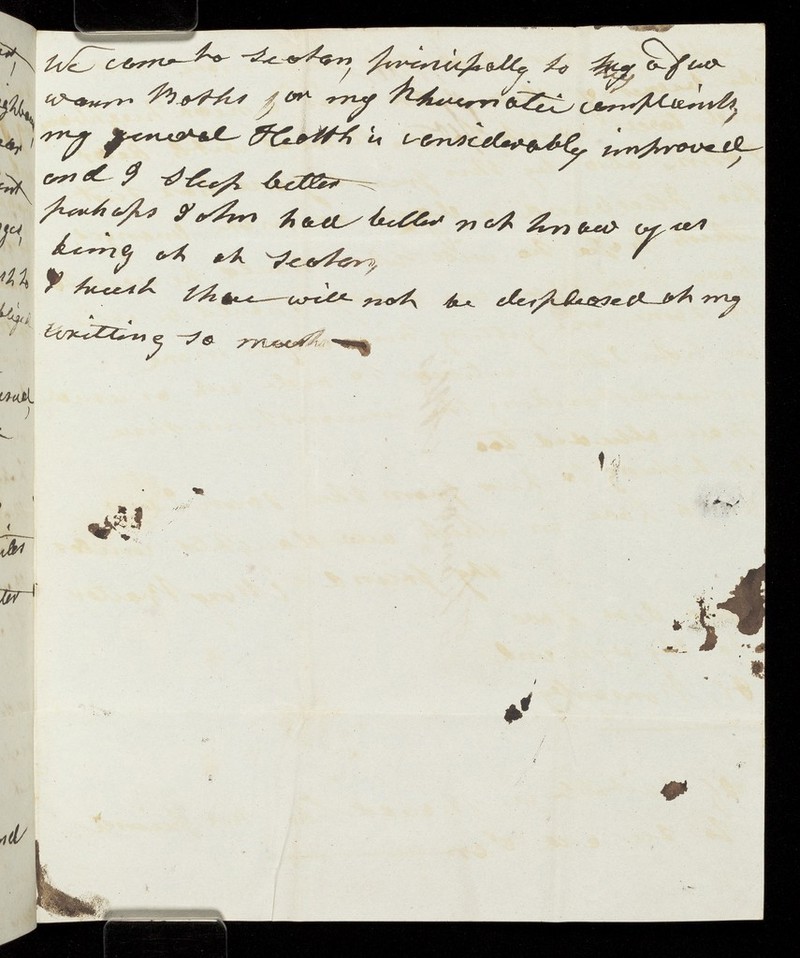 We came to Seaton, principally to try a few
warm Baths for my Rhuematic complaints,
my general Health is considerably improved,
and I sleep better
perhaps John had better not know of us
being at at Seaton,
I trust thou will not be displeased at my
writting so much